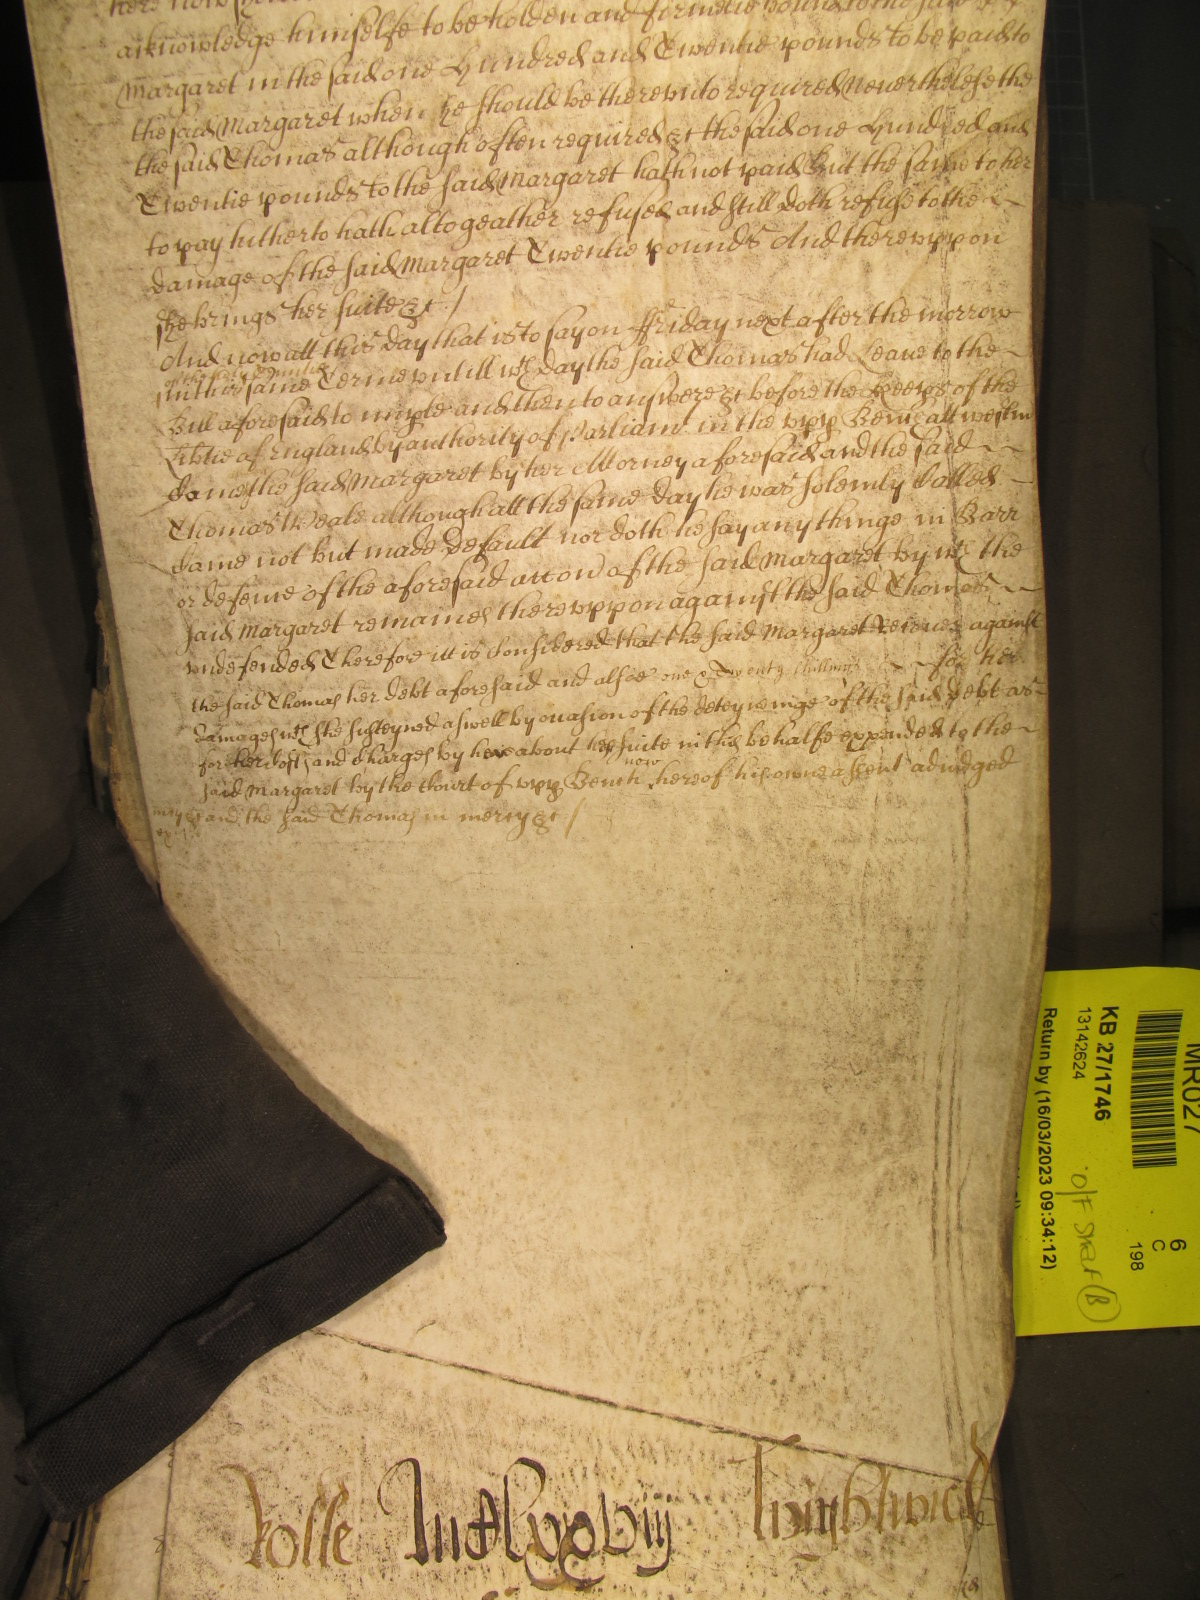 acknowledge himselfe to be holden and firmelie bound to the said
Margaret in the said one Hundred and Twentie pounds to be paid to
the said Margaret when he should be therevnto required Neverthelesse the
the said Thomas although often required &c the said one Hundred and
Twentie pounds to the said Margaret hath not paid But the same to her
to pay hitherto hath altogeather refused and still doth refuse to the
damage of the said Margaret Twentie pounds And therevppon
she brings her suite &c /
And now att this day that is to say on ffriday next after the morrow
in this same Terme vntill wch day the said Thomas had Leave to the
Bill aforesaid to imple and then to answere &c before the Keeps of the
Libtie of England by authority of Parliamt in the vpp Bench att westm
Came the said Margaret by her Attorney aforesaid and the said
Thomas Weale although att the same day he was solemly Called
Came not but made Default nor doth he say any thinge in Barr
or defence of the aforesaid accon of the said Margaret by wch the
said Margaret remaines therevppon against the said Thomas
vndefended Therefore itt is Considered that the said Margaret Recover against
the said Thomas her debt aforesaid and alsoe one & Twenty shillings for her
Damages wch she susteyned aswell by occasion of the deteyninge of the said debt as
for her Costs and Charges by her about her suite in this behalfe expended to the
said Margaret by the Court of vpp Bench now hereof his owne assent adiudged
and the said Thomas in mercy &c /
Rolle
Wightwick
MR027
KB 27/1746
13142624
Return by (16/03/2023 09:34:12)
6
C
198
O/F Shelf (B)